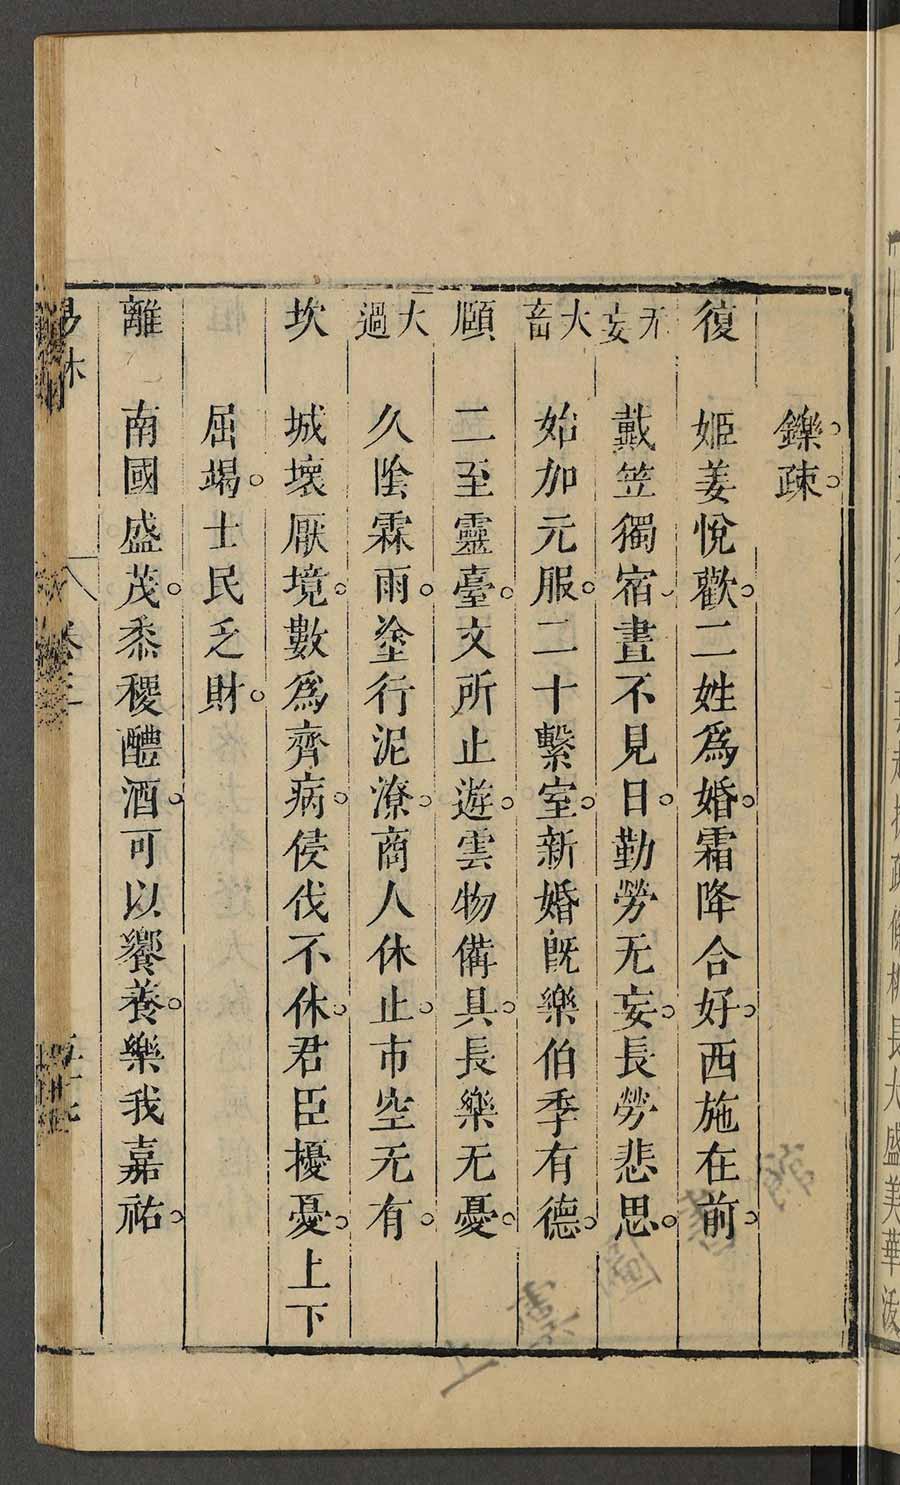 鑠疎
復 姬姜悅歡二姓爲婚霜降合好西施在前
无妄 戴笠獨宿晝不見日勤勞无妄長勞悲思
大畜 始加元服二十繫室新婚旣樂伯季有德
頤 二至靈臺文所止遊雲物備具長樂无憂
大過 久陰霖雨塗行泥潦商人休止市空无有
坎 城壞厭境數爲齊病侵伐不休君臣擾憂上下
屈竭士民乏財
離 南國盛茂黍稷醴酒可以饗養樂我嘉祐
易林